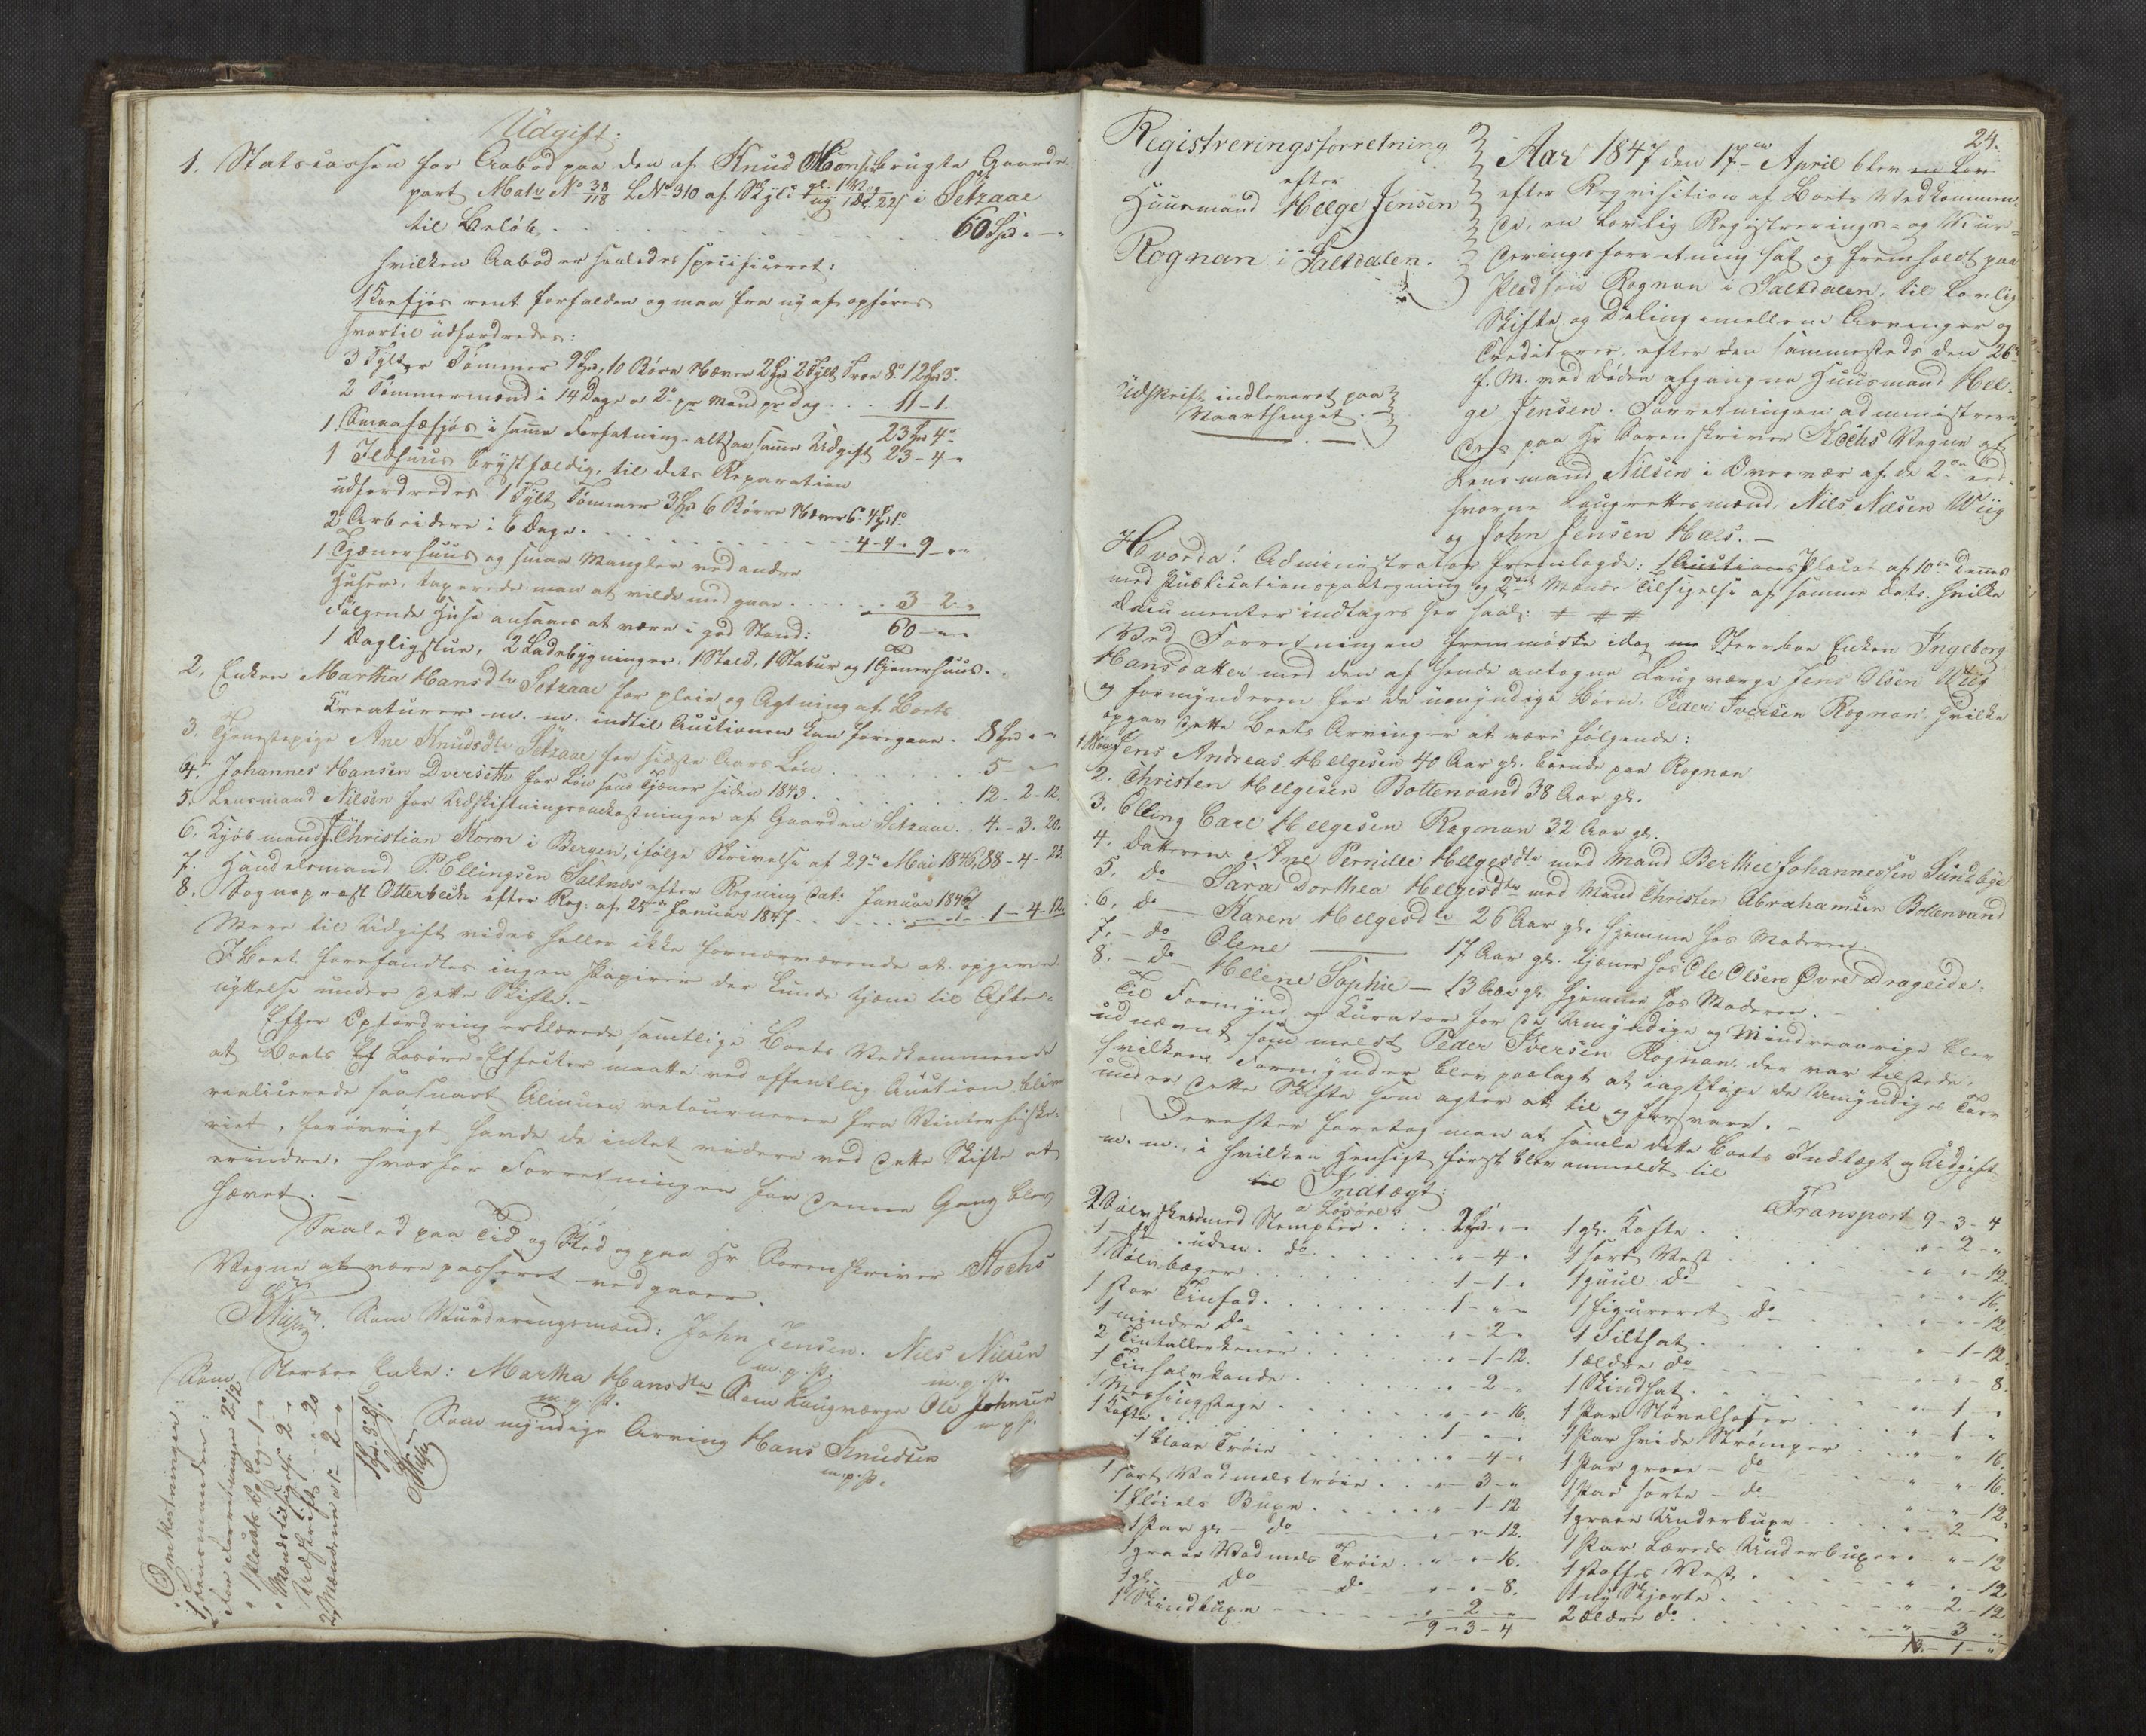 Udgift:
1. Statscassen for Aabod paa den af Knud Monsen brugte Gaarde-
part Matr No 38/118 LNo 310 af Skyld gl. 1 Vog ny 1 Dr. 22s i Setzaae
til Beløb . . . 60 Spd. - „
hvilken Aabod er saaledes specificeret:
1 Koefjøs rent forfalden og maa fra ny af opføres
hvortil udfordredes:
3 Tylter Tømmer 9 Spd, 10 Børe Næver 2 Spd 2 Tylt Træe 8. 12 Spd 3.
2 Tømmermænd i 14 Dage a 2 pr Mand pr Dag . . . 11 - 1.
23 Spd 4
1 Smaafæfjøs i samme Forfatning - altsaa samme Udgift 23 - 4 - „
1 Ildhuus brystfældig, til dets Reparation
udfordredes 1 Tylt Tømmer 3 Spd 6 Børre Næver 6. 4 Spd 1
2 Arbeidere i 6 Dage . . . 4 - 4 . 9 - „ „
1 Tjenerhuus og smaa Mangler ved andre
Huser, taxerede man at ville medgaae . . . 3 - 2 . „
60 - „ - „
Følgende Huse ansaaes at være i god Stand:
1 Dagligstue, 2 Ladebygninger, 1 Stald, 1 Stabur og 1 Tjenerhuus.
2, Enken Martha Hansdtr Setzaae for pleie og Agtning af Boets
Kreaturer m. m. indtil Auctionen kan foregaae . 8 Spd. „ „
3. Tjenestepige Ane Knudsdtr Setzaae for sidste Aars Løn . . . 5 - „
4. Johannes Hansen Dverseth for Løn som Tjener siden 1843 . . . 12 - 2 - 12.
5. Lensmand Nilsen for Udskiftningsomkostninger af Gaarden Setzaae . . 4 . - 3 . 20.
6. Kjøbmand J. Christian Korn i Bergen, ifølge Skrivelse af 29de Mai 1846 . 88 - 4 - 23.
7. Handelsmand P. Ellingsen Saltnes efter Regning dat: Januar 1846
8. Sognepræst Otterbech efter Reg. af 25de Januar 1847 . . . 1 - 4 - 12.
Mere til Udgift vides heller ikke fornærværende at opgive.
I Boet forefandtes ingen Papirer der kunde tjene til Efter-
nyttelse under dette Skifte. -
Efter Opfordring erklærede samtlige Boets Vedkommende
at Boets Ef Løsøre-Effecter maatte ved offentlig Auction blive
realicerede saasnart Almuen retournerer fra Vinterfiske-
riet, forøvrigt havde de intet videre ved dette Skifte at
erindre, hvorfor Forretningen for denne Gang blev
hævet. -
Saaled paa Tid og Sted og paa Hr Sorenskriver Kochs
Vegne at være passeret vedgaaer.
Nilsen. Som Vurderingsmænd: John Jensen. Nils Nilsen
m. p. P. m. p. P.
Som Sterboe Enke: Martha Hansdtr Som Laugværge Ole Johnsen
m. p. P. m. p. P.
Som myndige Arving Hans Knudsen
m. p. P.
Omkostninger:
1, Lensmanden:
For Forretningen 2 12
" 1 Placats Opslag 1 - „
" Mænds tilsigelse 2 - „
" Udskrift . . „ 20
2, Mændene a 1 2 - „
1 Spd. 3 8 s.
Nilsen
24.
Registreringsforretning
efter
Huusmand Helge Jensen
Rognan i Saltdalen.
Udskrift indleveret paa
Vaarthinget. -
Aar 1847 den 17de April blev en Lov
efter Reqvisition af Boets Vedkommen-
de, en lovlig Registrerings- og Vur-
deringsforretning sat og fremholdt paa
Pladsen Rognan i Saltdalen, til lovlig
Skifte og Deling imellem Arvinger og
Creditorer, efter den sammesteds den 26de
f. M. ved Døden afgangne Huusmand Hel-
ge Jensen. Forretningen administreres
paa Hr Sorenskriver Kochs Vegne af
Lensmand Nilsen i Overvær af de 2de ed-
svorne Laugrettesmænd, Nils Nilsen Wiig
og John Jensen Hals. -
Hvorda! Administrator fremlagde: 1 Auctions Placat af 10de dennes
med Publicationspaategning og 2de Mænds Tilsigelse af samme Dato. hvilke
Documenter indtages her saal: # # #
Ved Forretningen fremmødte idag Sterrboe Enken Ingeborg
Hansdatter med den af hende antagne Laugværge Jens Olsen Wiig
og Formynderen for de umyndige Børn, Peder Iversen Rognan, hvilke
opgav dette Boets Arvinger at være følgende:
1 Søn Jens Andreas Helgesen 40 Aar gl. boende paa Rognan
2. Christen Helgesen Bottenvand 38 Aar gl.
3. Elling Carl Helgesen Rognan 32 Aar gl.
4. Datteren Ane Pernille Helgesdtr med Mand Berthel Johannessen Sundbye
5. do Sara Dorthea Helgesdtr med Mand Christen Abrahamsen Bottenvand
6. do Karen Helgesdtr 26 Aar gl. hjemme hos Moderen.
7. - do Olene —— 17 Aar gl. tjener hos Ole Olsen Øvre Drageide.
8. - do Helene Sophie — 13 Aar gl. hjemme hos Moderen. -
Til Formynd. og Curator for de Umyndige og Mindreaarige blev
udnævnt som meldt Peder Iversen Rognan, der var tilstede.
hvilken Formynder blev paalagt at iagttage de Umyndiges Tarv
under dette Skifte som agter at til og forsvare. -
Derefter foretog man at samle dette Boets Indtægt og Udgift
m. m., i hvilken Hensigt først blev anmeldt til
til Indtægt:
a Løsøre:
2 Sølvskeed med Stempler . . . 2 Spd. „ -
1 do . uden . do . . . „ - 4 „
1 Sølvbæger . . . 1 - 1 „
1 Stor Tinfad . . . 1 - „ -
1 mindre do . . . „ - 2 „
2 Tintallerkener . . . „ - 1 - 12.
1 Tinhalvkande . . . „ - 2 - „
1 Messingstage . . . „ - „ - 16.
1 Kofte . . . 1 - „ -
1 blaae Trøie . . . „ - 4 - „
1 sort Vadmelstrøie . . . „ - 3 - „
1 Fløiels Buxe . . . „ - 1 - 12
1 Par gl - do . . . „ - „ - 12.
1 graae Vadmels Trøie . „ - „ - 16.
1 gl. do do . . . „ - „ - 8.
1 Skindbuxe . . . „ - 2 - „
9 - 3 - 4
Transport 9 - 3 - 4
1 gl. Kofte . . . „ - 2 - „
1 sort Vest . . . „ - „ - 12.
1 guul do . . . „ - „ - 16.
1 figureret do . . . „ - „ - 12
1 Filthat . . . „ - 1 - 12.
1 ældre do . . . „ - „ - 8.
1 Skindhat . . . „ - 1 - „
1 Par Støvelhoser . . . „ - 1 - „
1 Par hvide Strømper . . . „ - „ - 16.
1 Par graae - do . . . „ - „ - 16.
1 Par sorte - do . . . „ - „ - 12.
1 graae Underbuxe . . . „ - 2 - „
1 Par Lærreds Underbuxer . . „ - „ - 12
1 Stoffes Vest . . . „ - „ - 12
1 ny Skjorte . . . „ - 2 - 12
2 ældre do . . . „ - 3 - „
13. - 1 - „